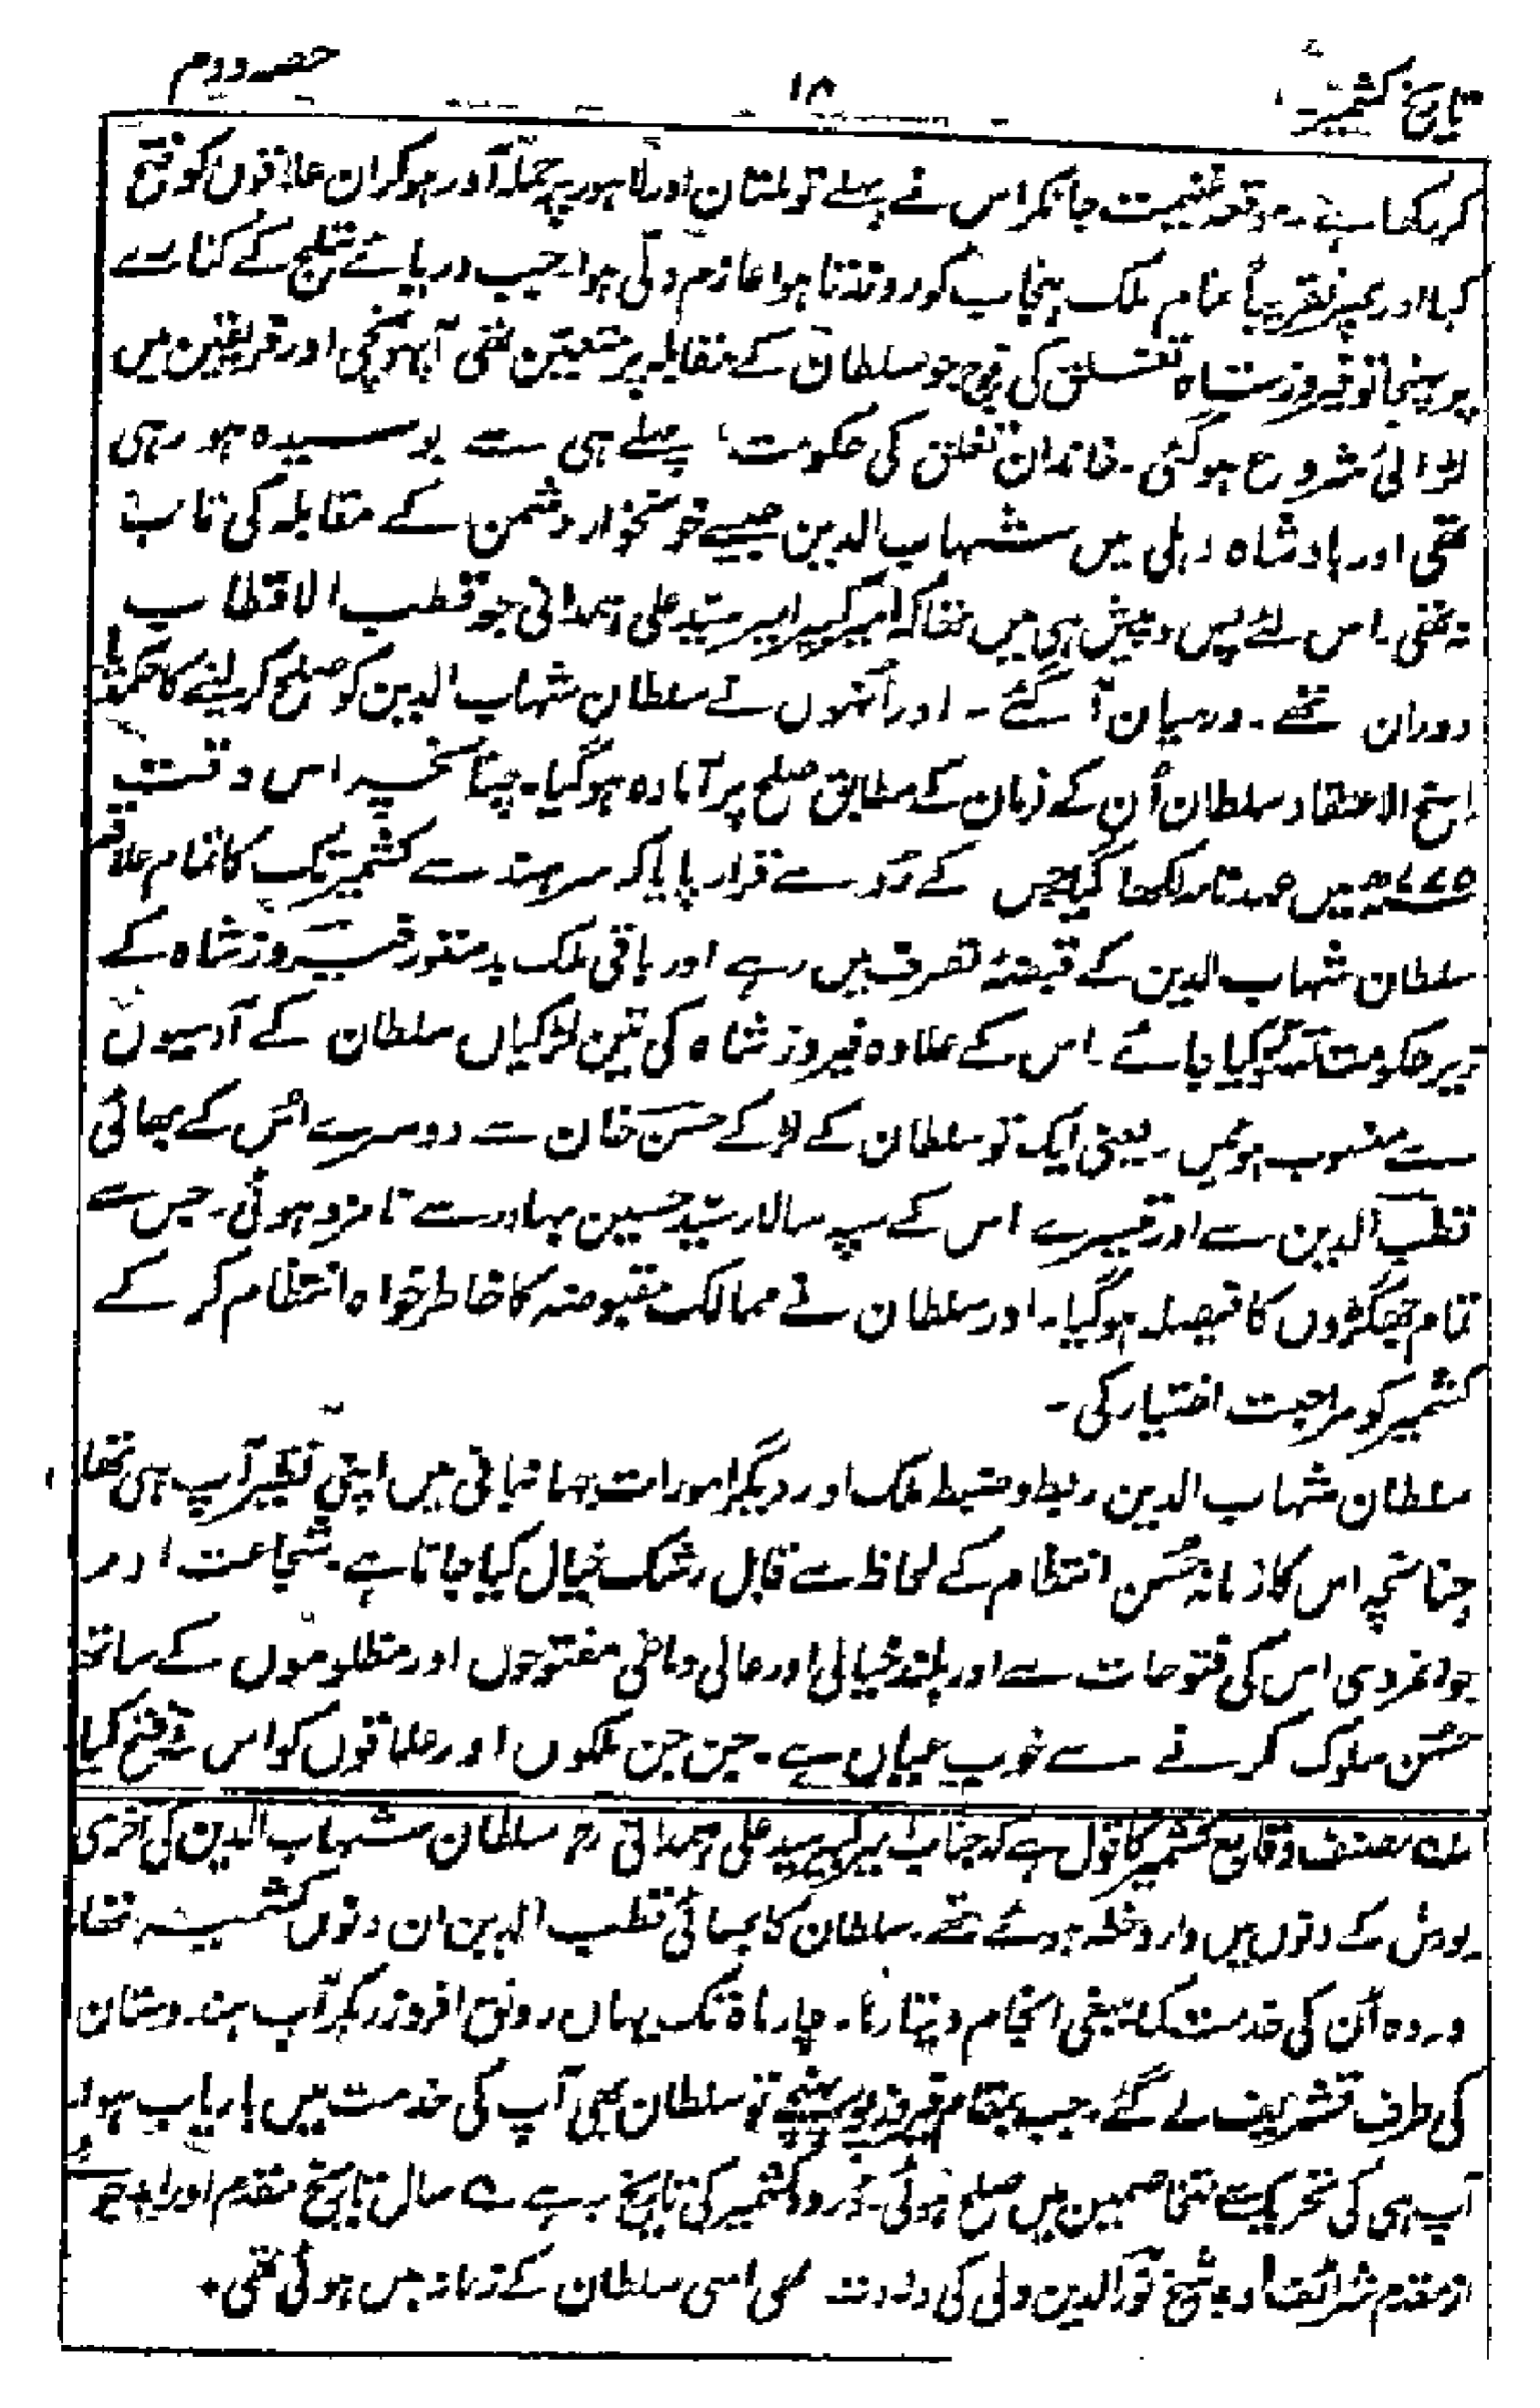 تاریخ کشمیر ۱۸ حصہ دوم
کر رکھا ہے۔ موقعہ غنیمت جانکر اس نے پہلے تو ملتان اور لاہور پر حملہ آور ہو کر ان علاقوں کو فتح
کیا اور پھر تقریباً تمام ملک پنجاب کو روندتا ہوا عازم دلی ہوا۔ جب دریائے ستلج کے کنارے
پر پہنچا تو فیروز شاہ تغلق کی فوج جو سلطان کے مقابلہ پر متعین تھی آپہونچی اور فریقین میں
لڑائی شروع ہو گئی۔ خاندان تغلق کی حکومت پہلے ہی سے بوسیدہ ہو رہی
تھی اور بادشاہ دہلی میں شہاب الدین جیسے خونخوار دشمن کے مقابلہ کی تاب
نہ تھی۔ اس لئے پس و پیش ہی میں تھا کہ امیر کبیر میر سید علی ہمدانی جو قطب الاقطاب
دوران تھے۔ درمیان آ گئے۔ اور اُنہوں نے سلطان شہاب الدین کو صلح کر لینے کا حکم
راسخ الاعتقاد سلطان اُن کے فرمان کے مطابق صلح پر آمادہ ہو گیا۔ چنانچہ اس وقت
۷۷۵ھ میں عہد نامہ لکھا گیا جس کے رُو سے قرار پایا کہ سرہند سے کشمیر تک کا تمام علاقہ
سلطان شہاب الدین کے قبضۂ تصرف میں رہے اور باقی ملک بدستور فیروز شاہ کے
زیر حکومت کیا جائے۔ اس کے علاوہ فیروز شاہ کی تین لڑکیاں سلطان کے آدمیوں
سے منسوب ہوئیں۔ یعنی ایک تو سلطان کے لڑکے حسن خان سے دوسرے اُس کے بھائی
قطب الدین سے اور تیسرے اس کے سپہ سالار سید حسین بہادر سے نامزد ہوئی۔ جس سے
تمام جھگڑوں کا فیصلہ ہو گیا۔ اور سلطان نے ممالک مقبوضہ کا خاطر خواہ انتظام کر کے
کشمیر کو مراجبت اختیار کی۔
سلطان شہاب الدین ربط و ضبط ملک اور دیگر امورات جہانبانی میں اپنی نظیر آپ ہی تھا
چنانچہ اس کا زمانہ حُسن انتظام کے لحاظ سے قابل رشک خیال کیا جاتا ہے۔ شجاعت اور
جوانمردی اس کی فتوحات سے اور بلند خیالی اور عالی دماغی مفتوحوں اور مظلوموں کے ساتھ
حُسن سلوک کرنے سے خوب عیاں ہے۔ جن جن ملکوں اور علاقوں کو اس نے فتح کیا
مصنف وقایع کشمیر کا قول ہے کہ جناب امیر کبیر سید علی ہمدانی رح سلطان شہاب الدین کی آخری
یورش کے دنوں میں وارد خطہ ہوئے تھے۔ سلطان کا بھائی قطب الدین ان دنوں کشمیر تھا
ور وہ اُن کی خدمت کما ینبغی انجام دیتا رہا۔ چار ماہ تک یہاں رونق افروز رہکر آپ ہندوستان
کی طرف تشریف لے گئے۔ جب بمقام فیروزپور پہنچے تو سلطان بھی آپ کی خدمت میں باریاب ہوا
آپ ہی کی تحریک سے متخاصمین میں صلح ہوئی۔ ورود کشمیر کی تاریخ یہ ہے سال تاریخ مقدم اورا بجو
از مقدم شریف او شیخ نورالدین ولی کی ولادت بھی اسی سلطان کے زمانہ میں ہوئی تھی